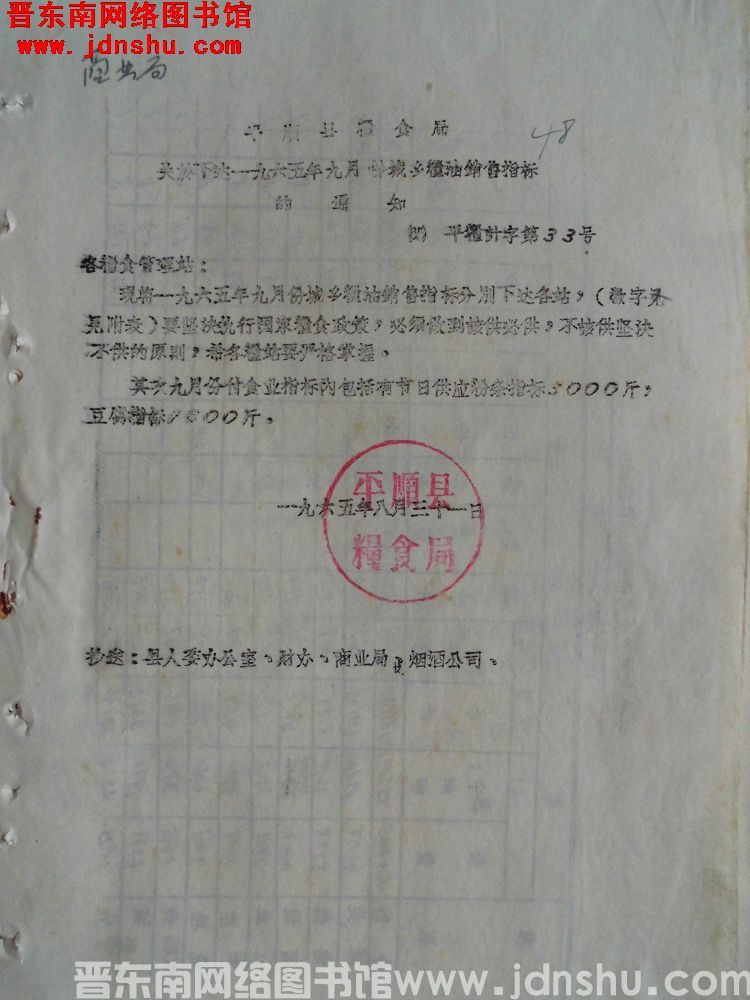 晋东南网络图书馆
www.jdnshu.com
商业局
48
平顺县糧食局
关於下达一九六五年九月份城乡糧油銷售指标
的通知
(65) 平糧計字第33号
各糧食管理站：
現将一九六五年九月份城乡糧油銷售指标分別下达各站，（数字見
見附表）要坚决执行国家糧食政策，必须做到該供必供，不該供坚决
不供的原則，希各糧站要严格掌握。
其次九月份付食业指标內包括有节日供应粉条指标5000斤，
豆腐指标1500斤。
一九六五年八月三十一日
平順县
糧食局
抄送：县人委办公室、財办、商业局及烟酒公司。
晋东南网络图书馆www.jdnshu.com